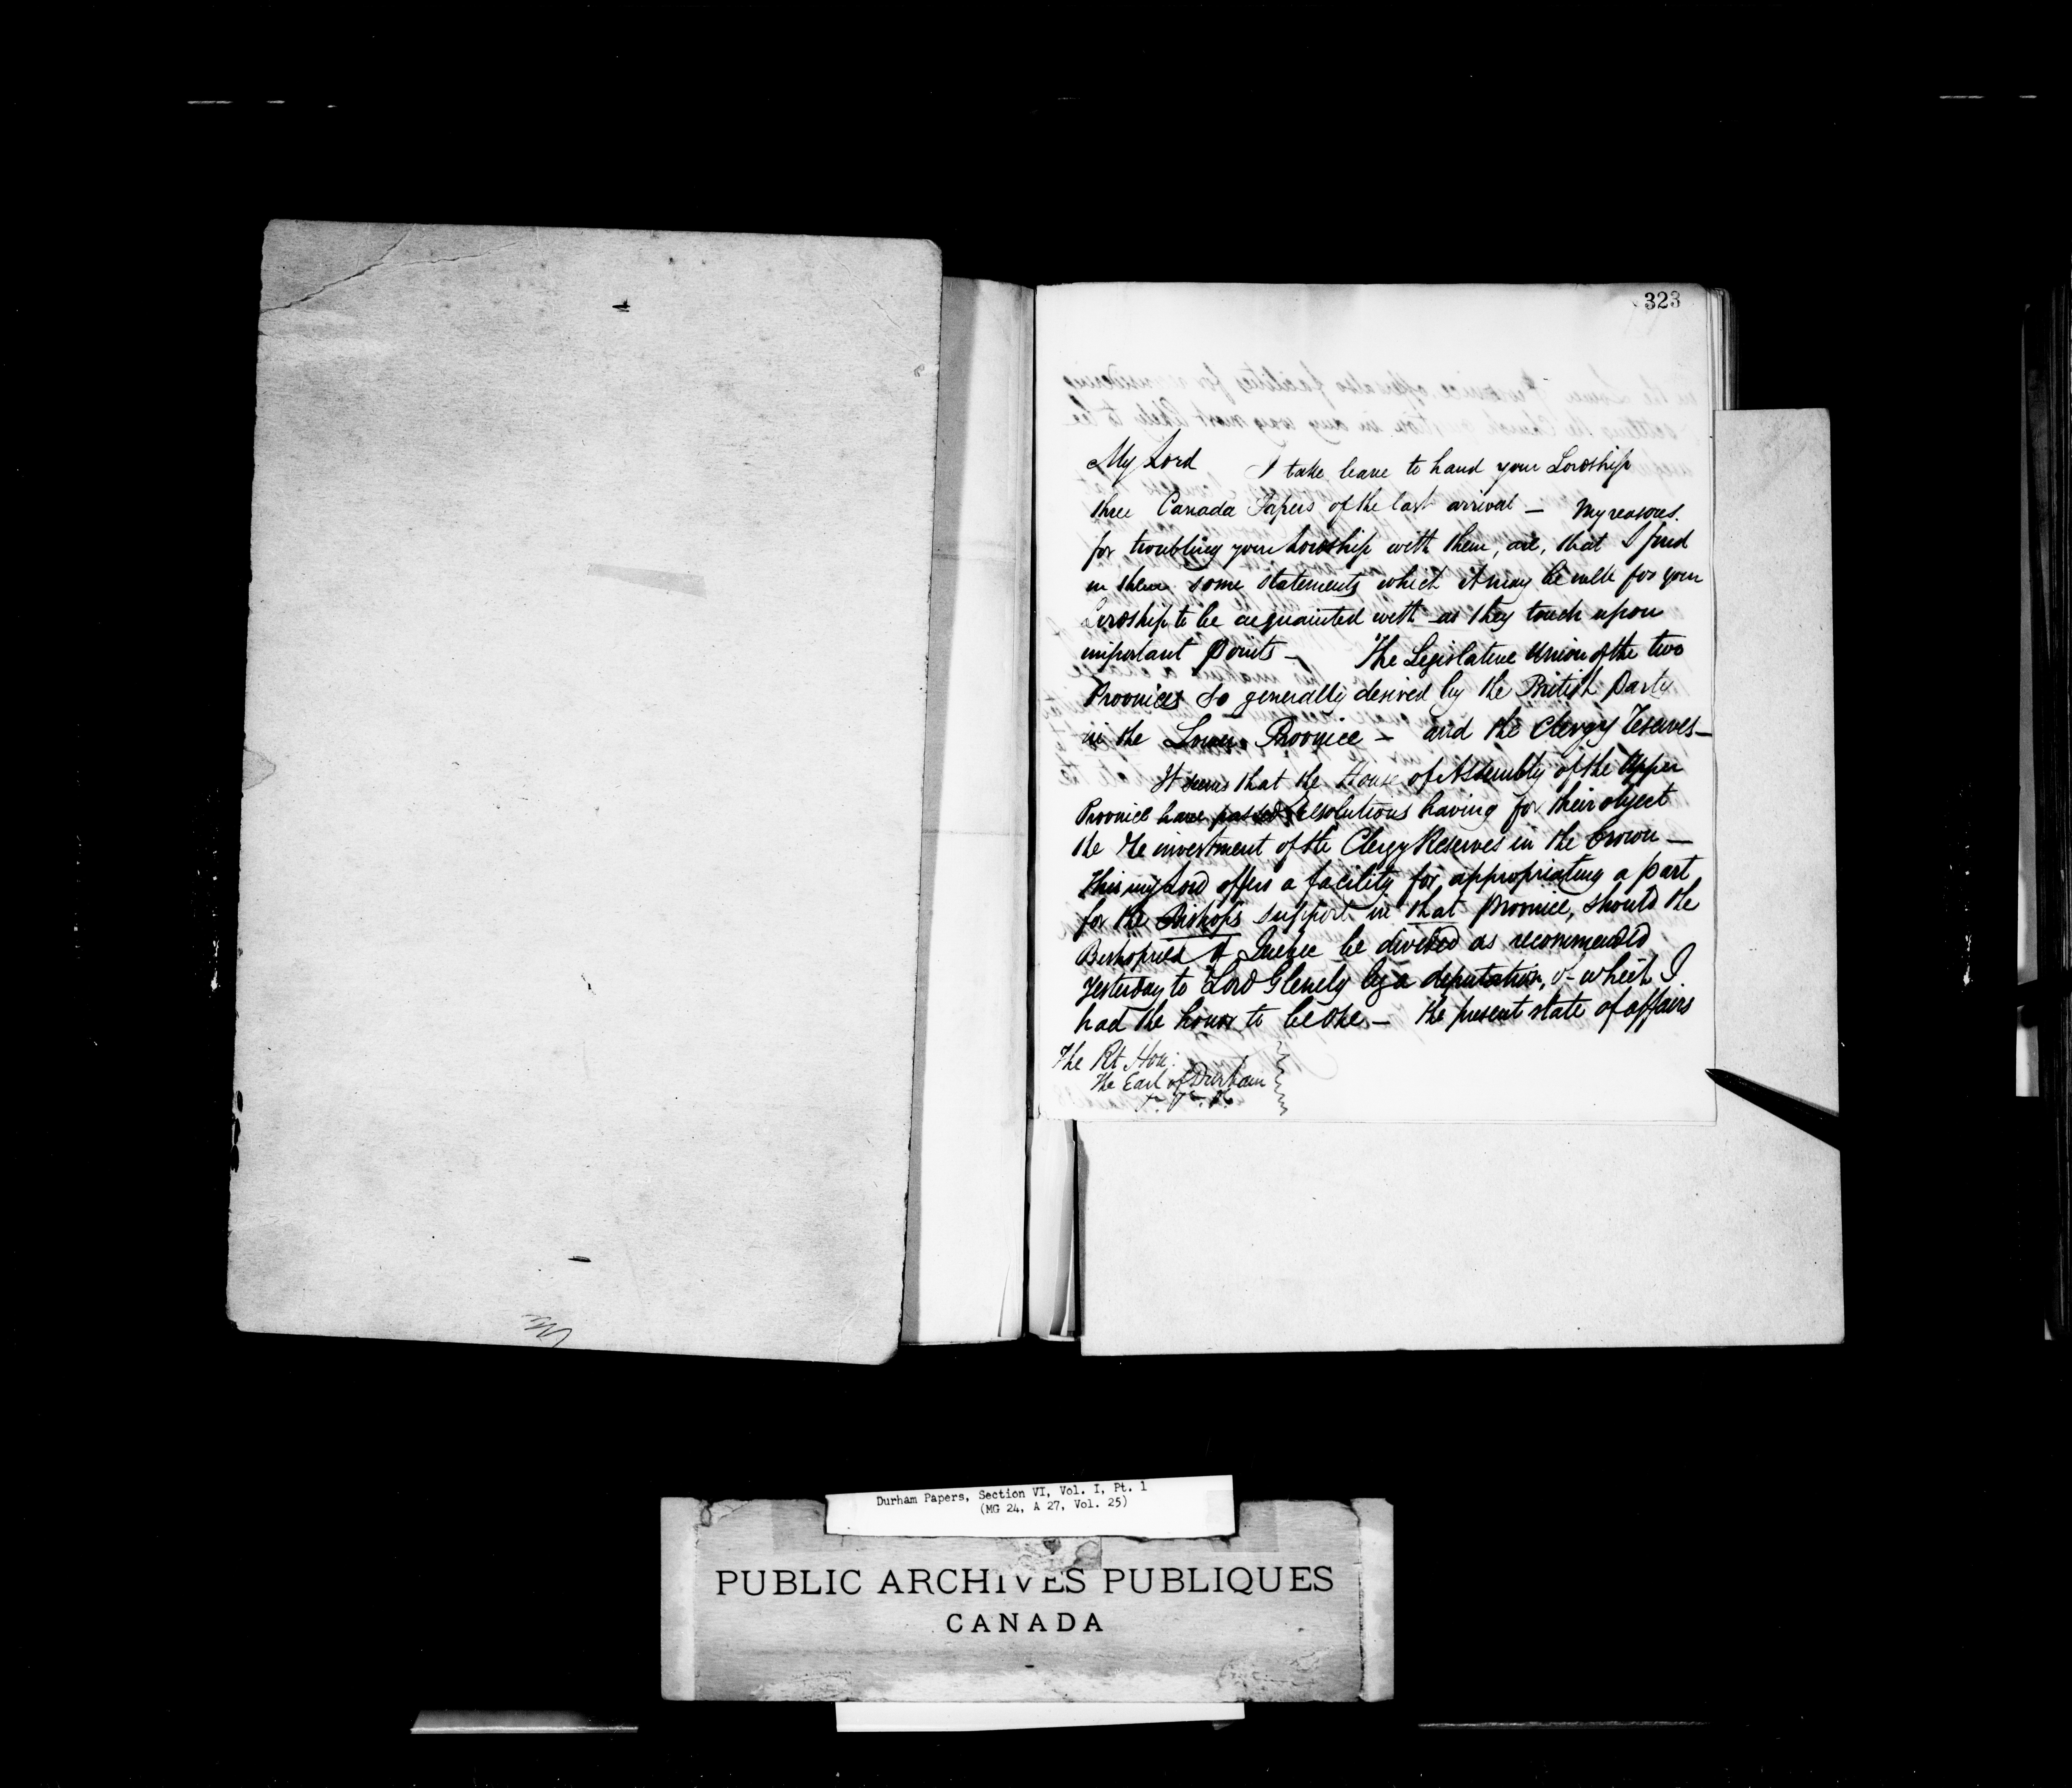 323
My Lord I take leave to hand your Lordship
three Canada Papers of the last arrival — My reasons
for troubling your Lordship with them, are, that I find
in them some statements which it may be well for your
Lordship to be acquainted with as they touch upon
important points — The Legislative Union of the two
Provinces so generally desired by the British Party
in the Lower Province — and the Clergy Reserves —
It seems that the House of Assembly of the Upper
Province have passed Resolutions having for their object
the Re investment of the Clergy Reserves in the Crown —
This my Lord offers a facility for appropriating a part
for the Bishops support in that Province, should the
Bishoprick of Quebec be divided as recommended
yesterday to Lord Glenelg by a deputation, of which I
had the honor to be one — the present state of affairs
The Rt. Hon:
The Earl of Durham
Durham Papers, Section VI, Vol. I, Pt. 1
(MG 24, A 27, Vol. 25)
PUBLIC ARCHIVES PUBLIQUES
CANADA